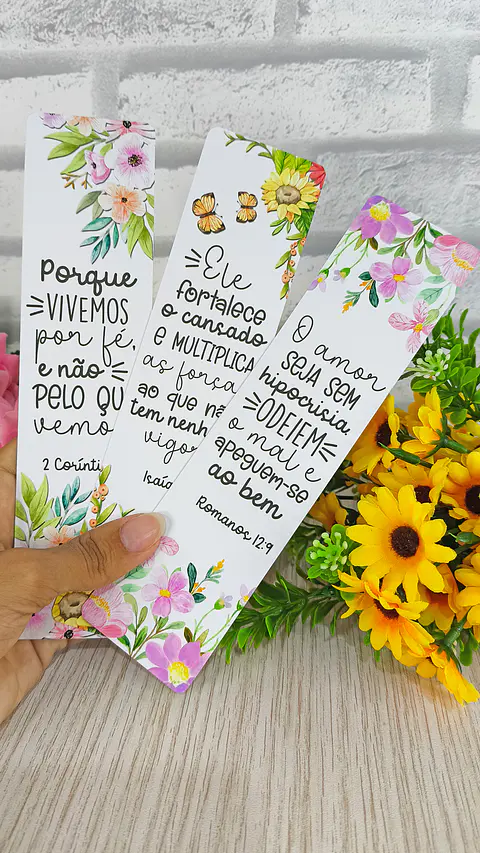 Porque
VIVEMOS
por fé,
e não
PELO QU
vemo
2 Corínti
Ele
fortalece
o cansado
E MULTIPLICA
as força
ao que nã
tem nenh
vigo
Isaía
O amor
SEJA SEM
hipocrisia.
ODEIEM
o mal e
apeguem-se
ao bem
Romanos 12:9